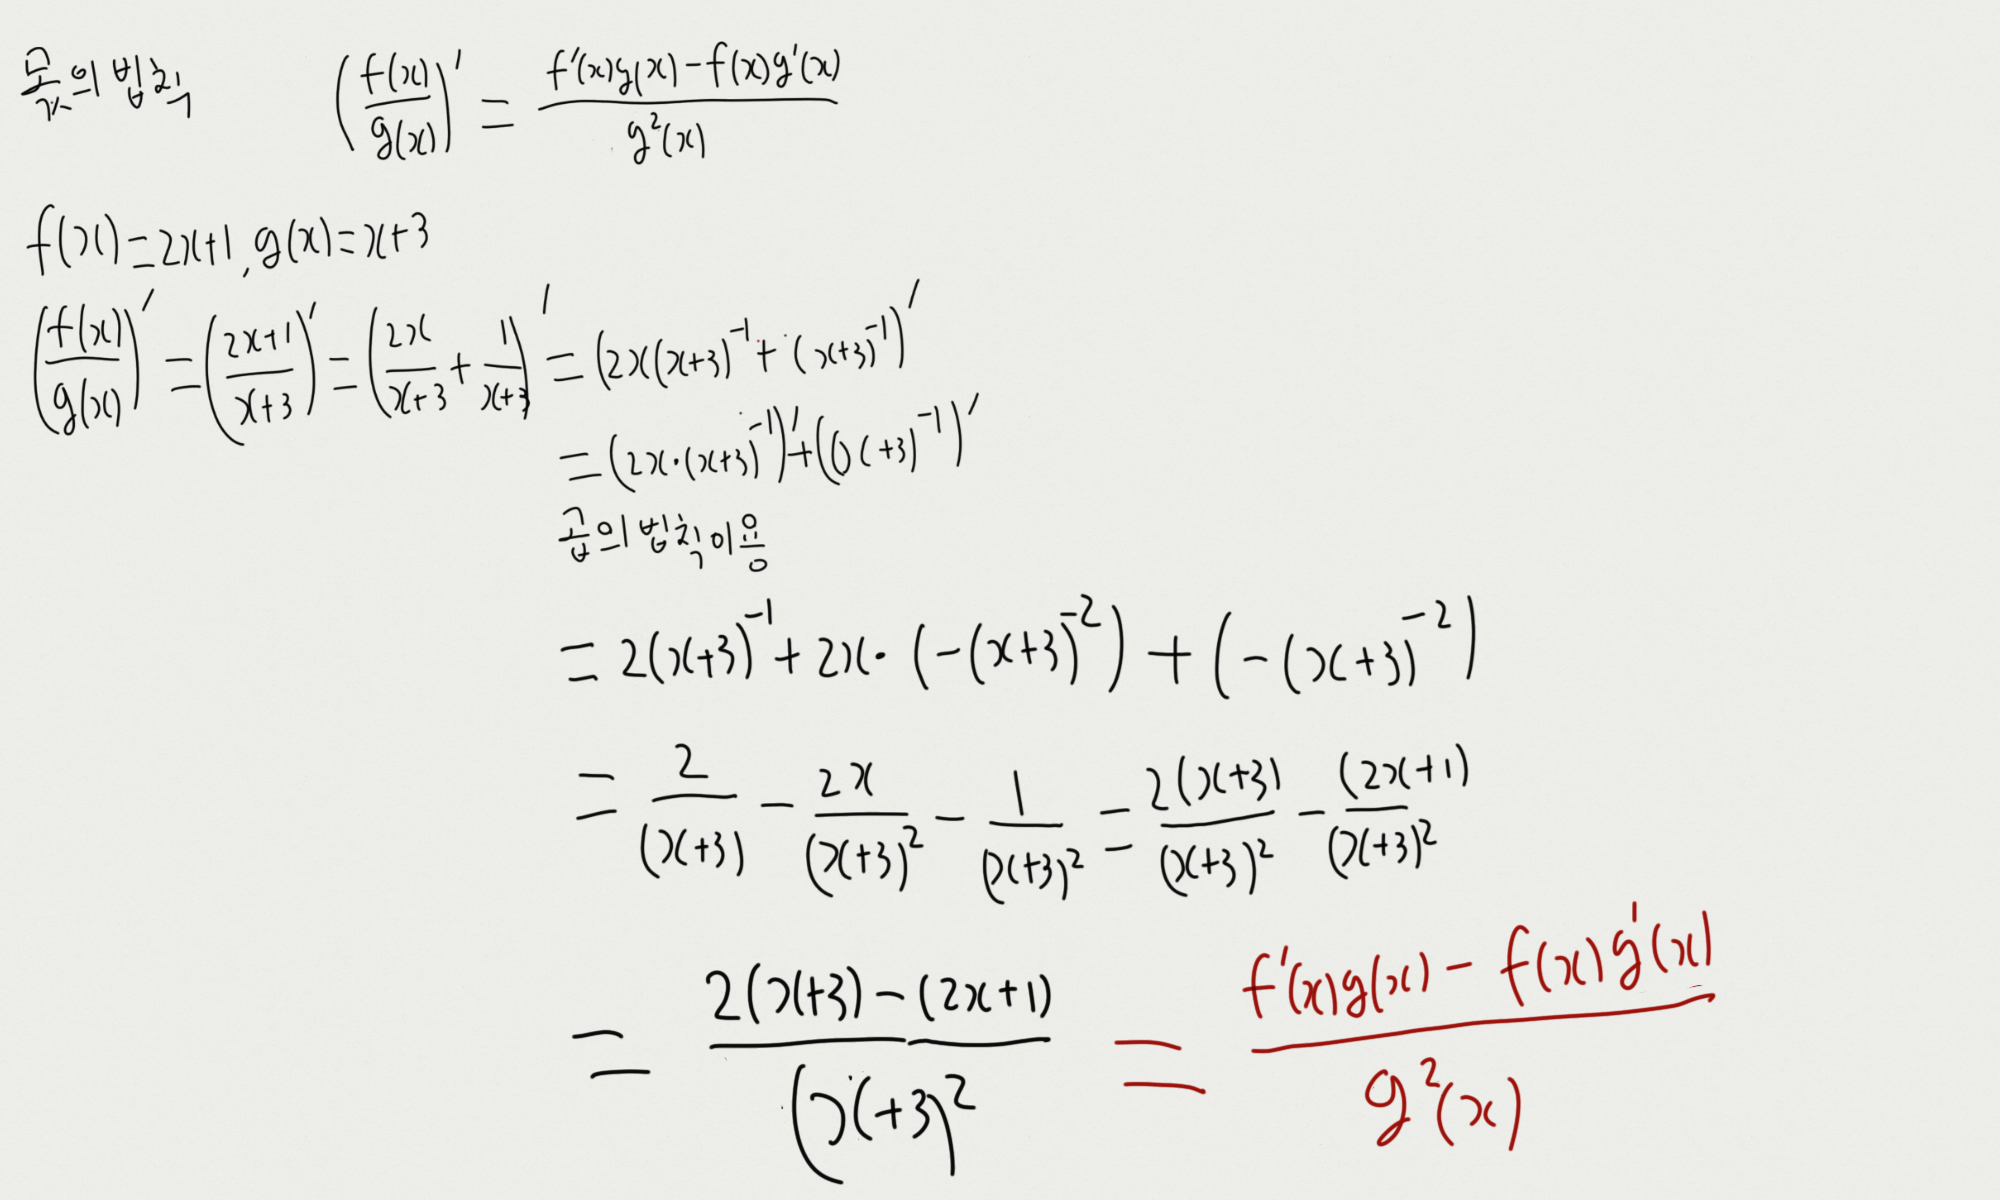 몫의 법칙 (f(x)/g(x))' = (f'(x)g(x)-f(x)g'(x))/g²(x)
f(x)=2x+1, g(x)=x+3
(f(x)/g(x))' = ((2x+1)/(x+3))' = (2x/(x+3) + 1/(x+3))' = (2x(x+3)⁻¹+(x+3)⁻¹)'
=(2x·(x+3)⁻¹)'+((x+3)⁻¹)'
곱의 법칙 이용
= 2(x+3)⁻¹+2x·(-(x+3)⁻²)+(-(x+3)⁻²)
= 2/(x+3) - 2x/(x+3)² - 1/(x+3)² = 2(x+3)/(x+3)² - (2x+1)/(x+3)²
= (2(x+3)-(2x+1))/(x+3)² = (f'(x)g(x)-f(x)g'(x))/g²(x)